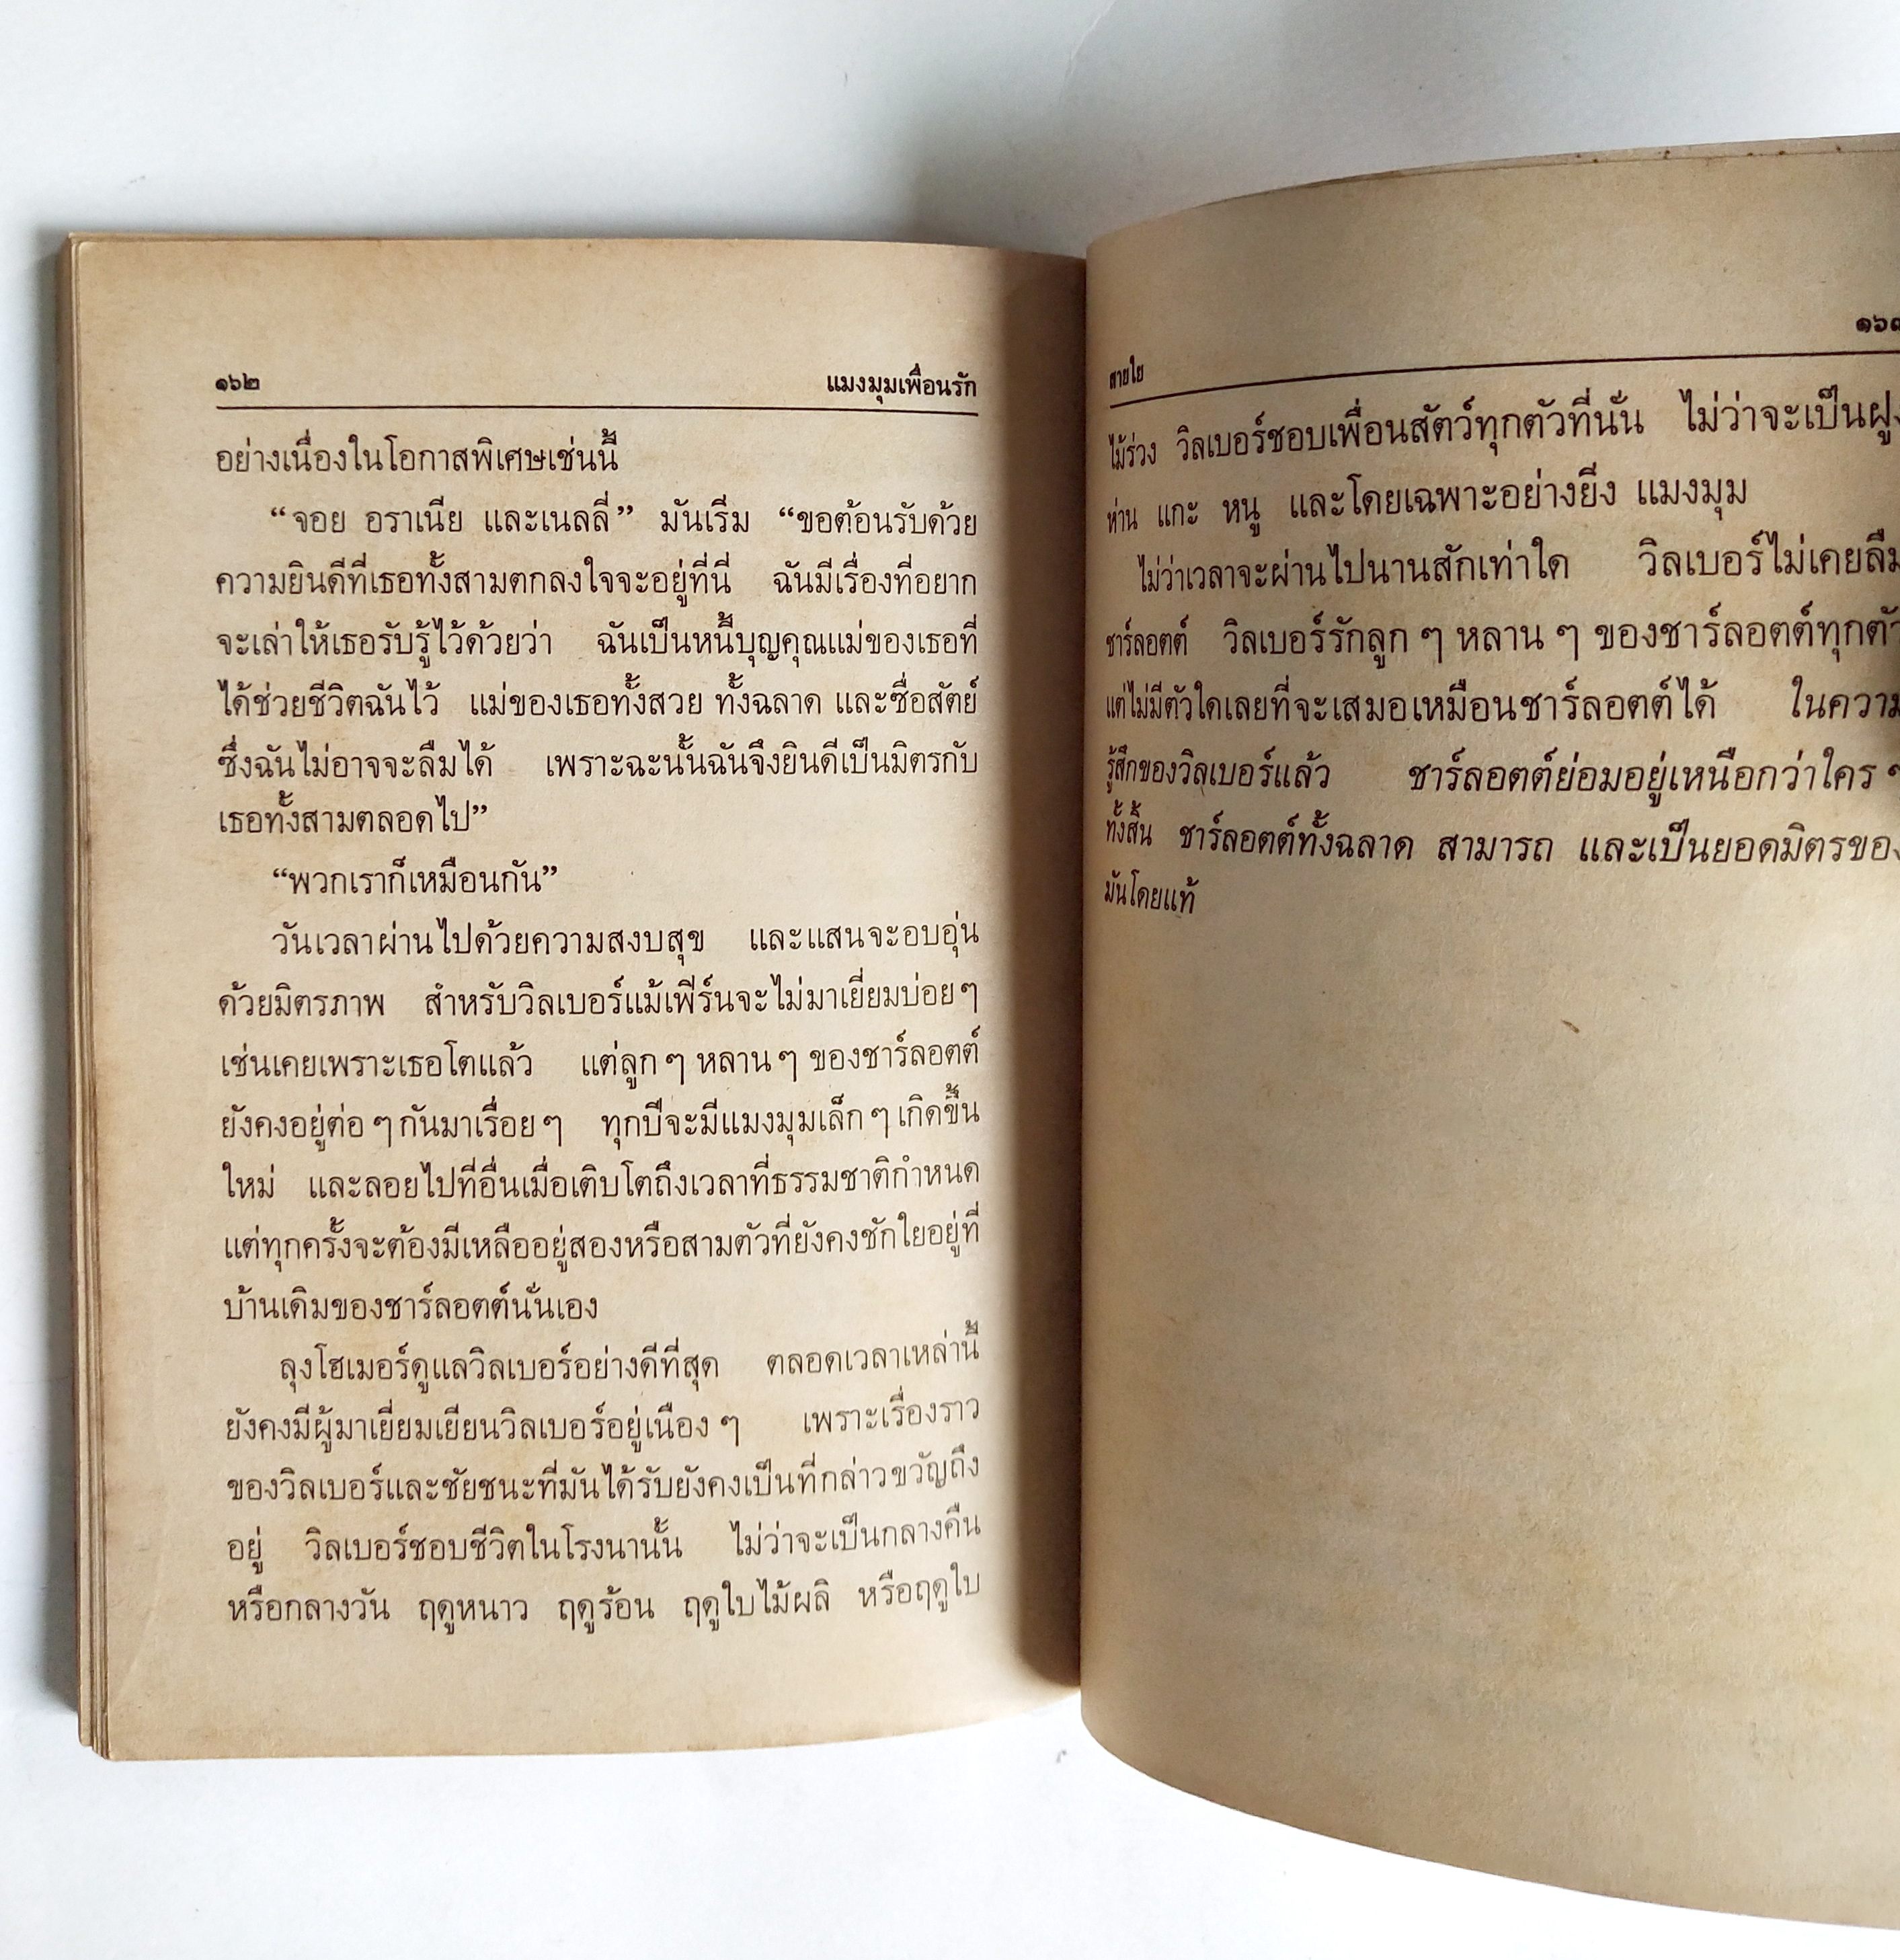 ๑๖๒ แมงมุมเพื่อนรัก
อย่างเนื่องในโอกาสพิเศษเช่นนี้
“จอย อราเนีย และเนลลี่” มันเริ่ม “ขอต้อนรับด้วย
ความยินดีที่เธอทั้งสามตกลงใจจะอยู่ที่นี่ ฉันมีเรื่องที่อยาก
จะเล่าให้เธอรับรู้ไว้ด้วยว่า ฉันเป็นหนี้บุญคุณแม่ของเธอที่
ได้ช่วยชีวิตฉันไว้ แม่ของเธอทั้งสวย ทั้งฉลาด และซื่อสัตย์
ซึ่งฉันไม่อาจจะลืมได้ เพราะฉะนั้นฉันจึงยินดีเป็นมิตรกับ
เธอทั้งสามตลอดไป”
“พวกเราก็เหมือนกัน”
วันเวลาผ่านไปด้วยความสงบสุข และแสนจะอบอุ่น
ด้วยมิตรภาพ สำหรับวิลเบอร์แม้เฟิร์นจะไม่มาเยี่ยมบ่อยๆ
เช่นเคยเพราะเธอโตแล้ว แต่ลูก ๆ หลาน ๆ ของชาร์ลอตต์
ยังคงอยู่ต่อ ๆ กันมาเรื่อย ๆ ทุกปีจะมีแมงมุมเล็ก ๆ เกิดขึ้น
ใหม่ และลอยไปที่อื่นเมื่อเติบโตถึงเวลาที่ธรรมชาติกำหนด
แต่ทุกครั้งจะต้องมีเหลืออยู่สองหรือสามตัวที่ยังคงชักใยอยู่ที่
บ้านเดิมของชาร์ลอตต์นั่นเอง
ลุงโฮเมอร์ดูแลวิลเบอร์อย่างดีที่สุด ตลอดเวลาเหล่านี้
ยังคงมีผู้มาเยี่ยมเยียนวิลเบอร์อยู่เนือง ๆ เพราะเรื่องราว
ของวิลเบอร์และชัยชนะที่มันได้รับยังคงเป็นที่กล่าวขวัญถึง
อยู่ วิลเบอร์ชอบชีวิตในโรงนานั้น ไม่ว่าจะเป็นกลางคืน
หรือกลางวัน ฤดูหนาว ฤดูร้อน ฤดูใบไม้ผลิ หรือฤดูใบ
สายใย ๑๖
ไม้ร่วง วิลเบอร์ชอบเพื่อนสัตว์ทุกตัวที่นั่น ไม่ว่าจะเป็นฝูง
ห่าน แกะ หนู และโดยเฉพาะอย่างยิ่ง แมงมุม
ไม่ว่าเวลาจะผ่านไปนานสักเท่าใด วิลเบอร์ไม่เคยลืม
ชาร์ลอตต์ วิลเบอร์รักลูก ๆ หลาน ๆ ของชาร์ลอตต์ทุกตัว
แต่ไม่มีตัวใดเลยที่จะเสมอเหมือนชาร์ลอตต์ได้ ในความ
รู้สึกของวิลเบอร์แล้ว ชาร์ลอตต์ย่อมอยู่เหนือกว่าใคร ๆ
ทั้งสิ้น ชาร์ลอตต์ทั้งฉลาด สามารถ และเป็นยอดมิตรของ
มันโดยแท้